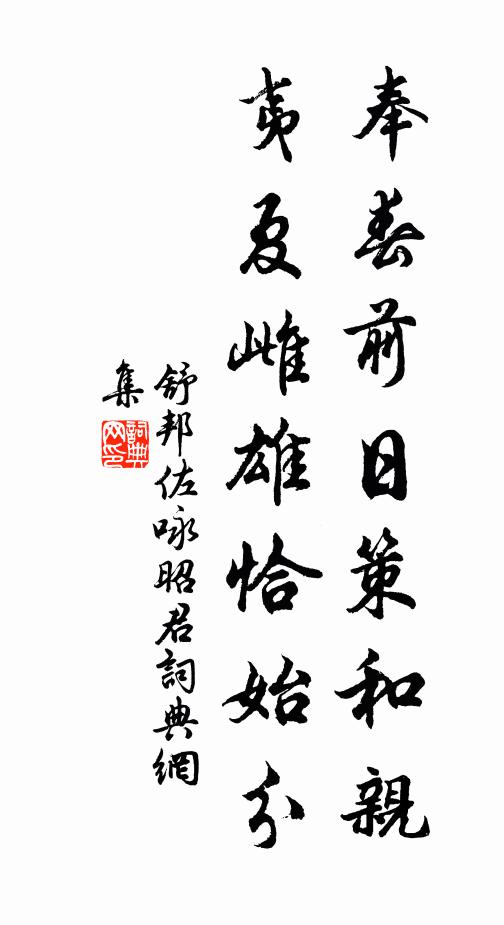 奉春前日策和親
夷夏雌雄恰始分
舒邦佐咏昭君詞典網
集
詞典
网印